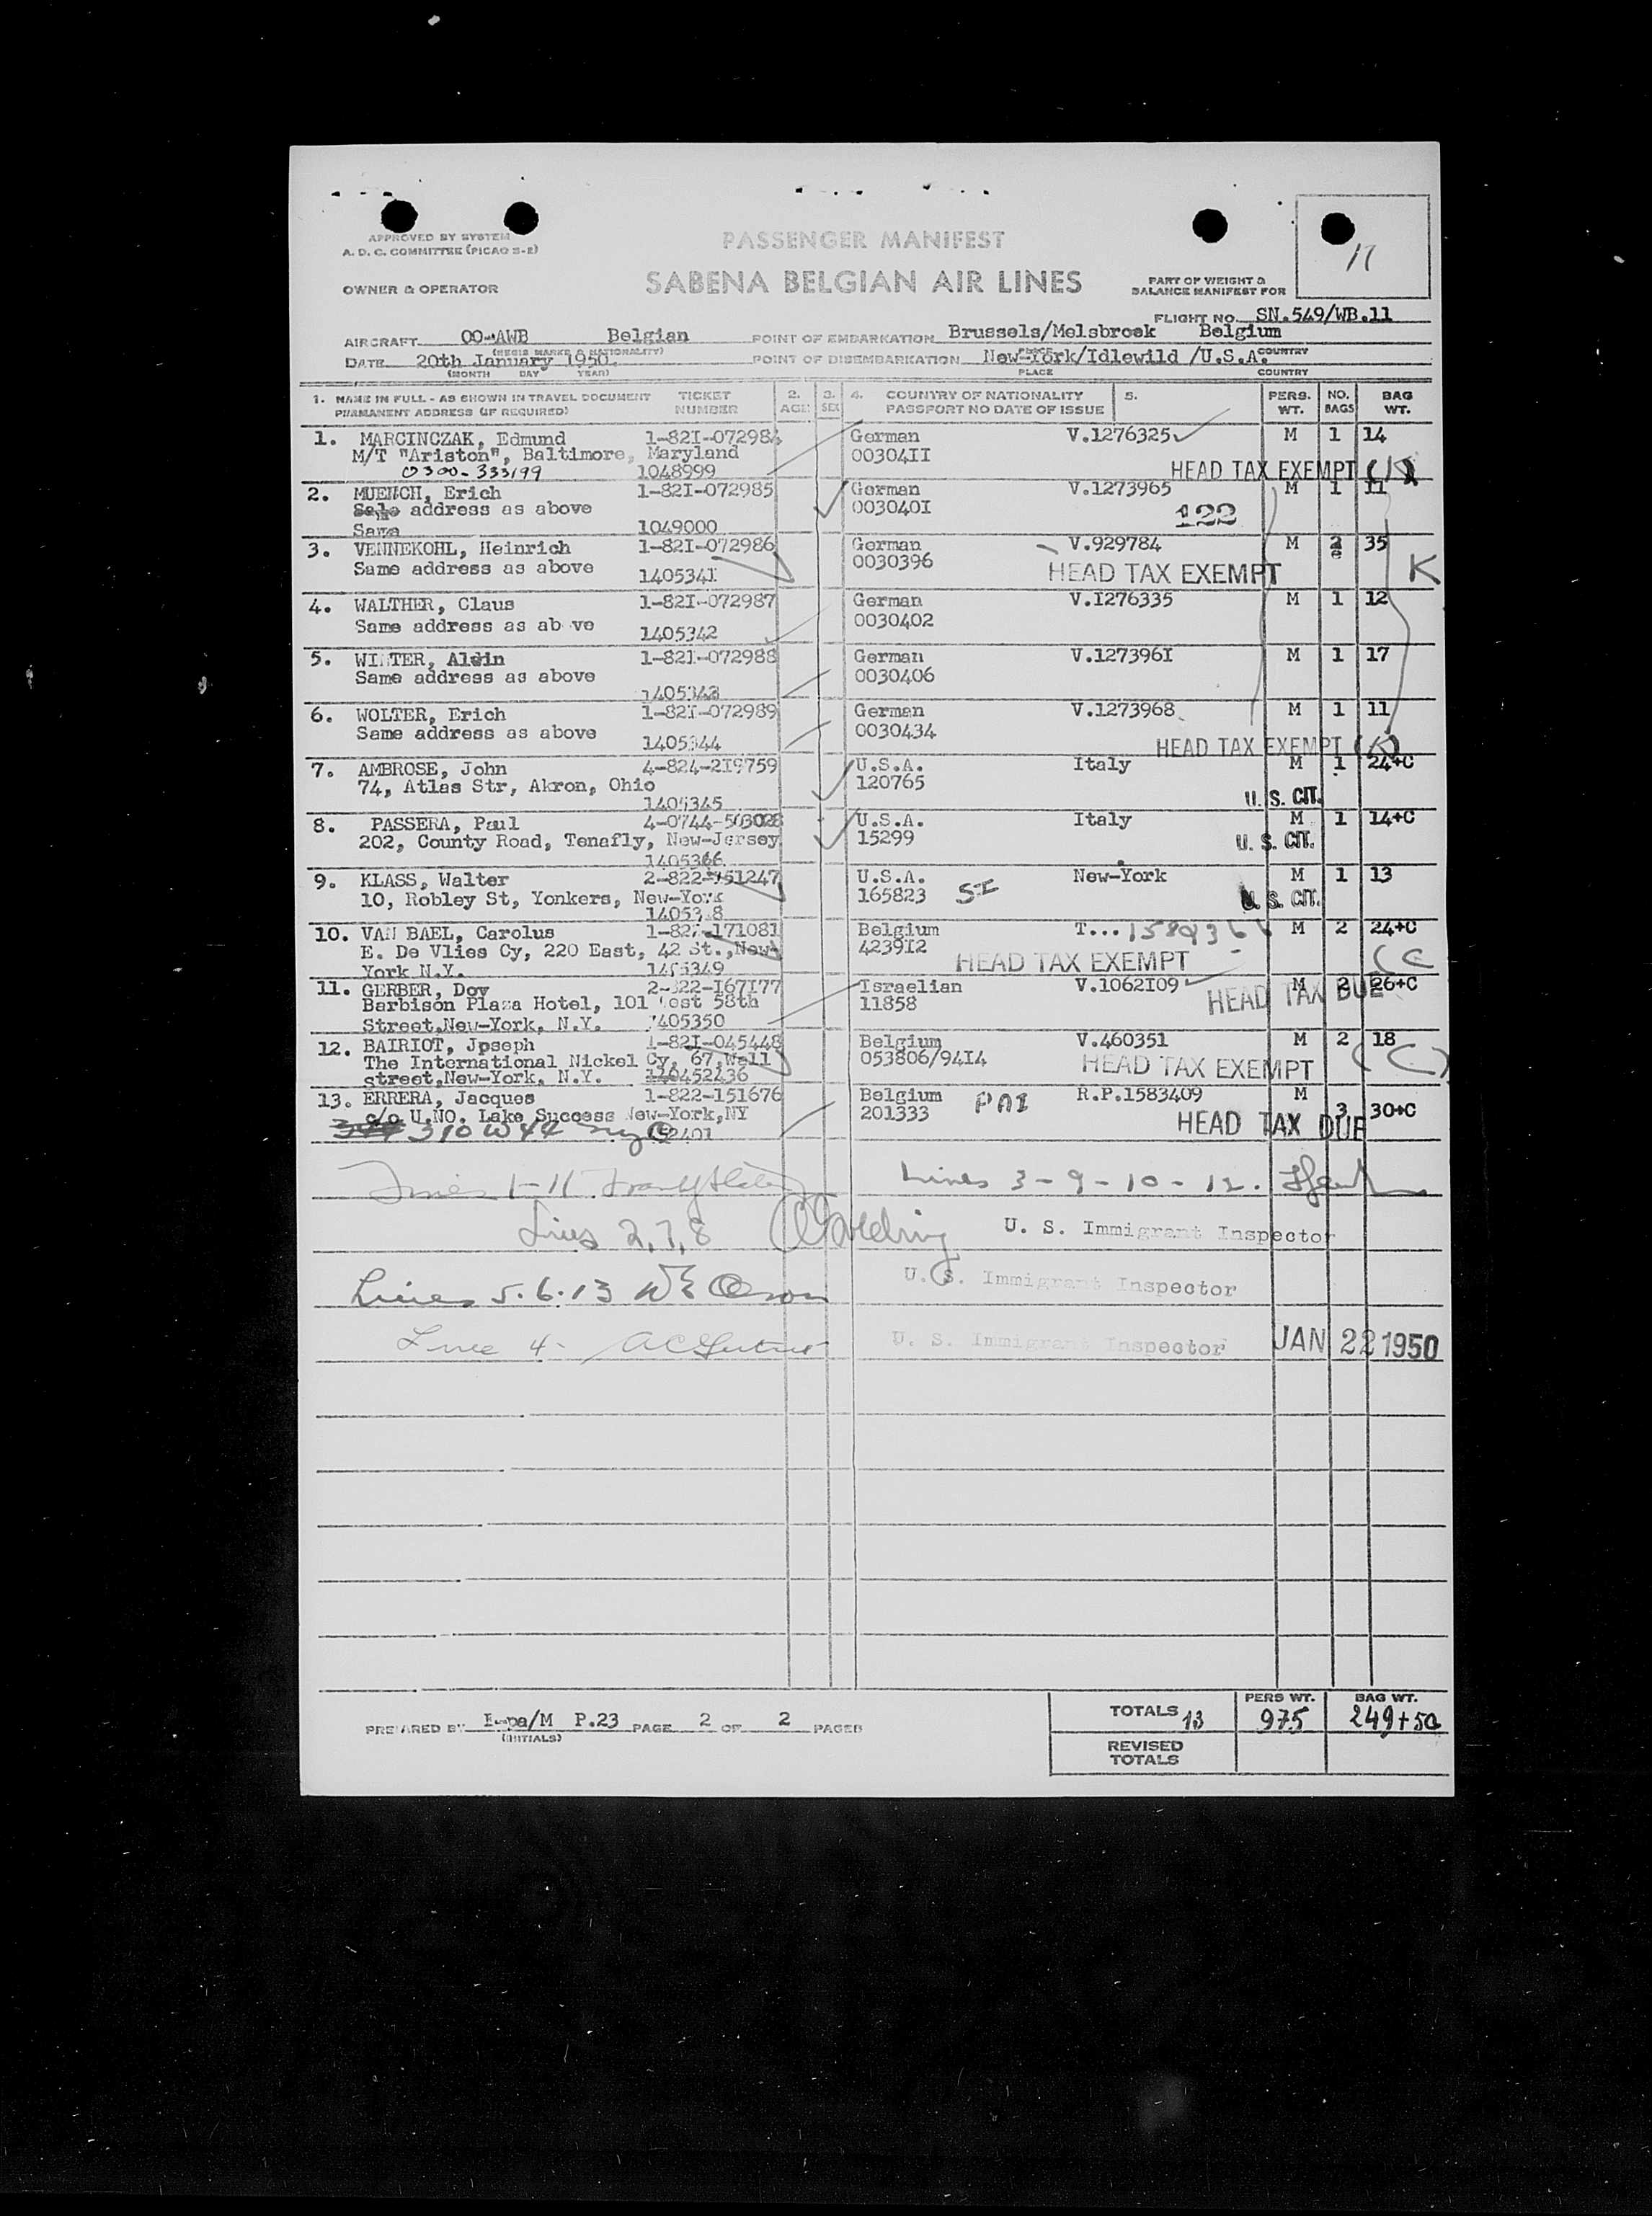 APPROVED BY SYSTEM
A. D. C. COMMITTEE (PICAO S-2)
PASSENGER MANIFEST
11
OWNER & OPERATOR
SABENA BELGIAN AIR LINES
PART OF WEIGHT &
BALANCE MANIFEST FOR
FLIGHT NO. SN.549/WB.11
AIRCRAFT OO-AWB Belgian POINT OF EMBARKATION Brussels/Melsbroek Belgium
(REGIS MARKS & NATIONALITY) PLACE COUNTRY
DATE 20th January 1950. POINT OF DISEMBARKATION New-York/Idlewild /U.S.A.
(MONTH DAY YEAR) PLACE COUNTRY
1. NAME IN FULL - AS SHOWN IN TRAVEL DOCUMENT TICKET 2. 3. 4. COUNTRY OF NATIONALITY 5. PERS. NO. BAG
PERMANENT ADDRESS (IF REQUIRED) NUMBER AGE SEX PASSPORT NO DATE OF ISSUE WT. BAGS WT.
1. MARCINCZAK, Edmund 1-82I-072984 German V.1276325 M 1 14
M/T "Ariston", Baltimore, Maryland 00304II
0300-333199 1048999 HEAD TAX EXEMPT (K)
2. MUENCH, Erich 1-82I-072985 German V.1273965 M 1 11
address as above 003040I 122
Same 1049000
3. VENNEKOHL, Heinrich 1-82I-072986 German V.929784 M 2 35
Same address as above 0030396 HEAD TAX EXEMPT K
1405341
4. WALTHER, Claus 1-82I-072987 German V.I276335 M 1 12
Same address as ab ve 0030402
1405342
5. WINTER, Alwin 1-82I-072988 German V.127396I M 1 17
Same address as above 0030406
1405343
6. WOLTER, Erich 1-82I-072989 German V.1273968 M 1 11
Same address as above 0030434
1405344 HEAD TAX EXEMPT (K)
7. AMBROSE, John 4-824-219759 U.S.A. Italy M 1 24+C
74, Atlas Str, Akron, Ohio 120765
1405345 U. S. CIT.
8. PASSERA, Paul 4-0744-503028 U.S.A. Italy M 1 14+C
202, County Road, Tenafly, New-Jersey 15299 U. S. CIT.
9. KLASS, Walter 2-822-151247 U.S.A. New-York M 1 13
10, Robley St, Yonkers, New-York 165823 SI U. S. CIT.
10. VAN BAEL, Carolus Belgium T... M 2 24+C
E. De Vlies Cy, 220 East, 42 St.,New- 4239I2 HEAD TAX EXEMPT (C
York N.Y. 1405349
11. GERBER, Dov 2-822-I67I77 Israelian V.1062I09 M 2 26+C
Barbison Plaza Hotel, 101 West 58th 11858 HEAD TAX DUE
Street,New-York, N.Y. 1405350
12. BAIRIOT, Jpseph 1-82I-045448 Belgium V.460351 M 2 18
The International Nickel Cy, 67,Wall 053806/94I4 HEAD TAX EXEMPT (C)
street,New-York, N.Y.
13. ERRERA, Jacques 1-822-151676 Belgium PAI R.P.1583409 M 3 30+C
c/o U.NO. Lake Success New-York,NY 201333 HEAD TAX DUE
310 W 44 nyc
Lines 1-11 Lines 3-9-10-12.
Lines 2,7,8 U. S. Immigrant Inspector
Lines 5.6.13 U. S. Immigrant Inspector
Line 4- U. S. Immigrant Inspector JAN 22 1950
PREPARED BY P.23 PAGE 2 OF 2 PAGES
(INITIALS)
TOTALS 13 PERS WT. 975 BAG WT. 249+5c
REVISED
TOTALS